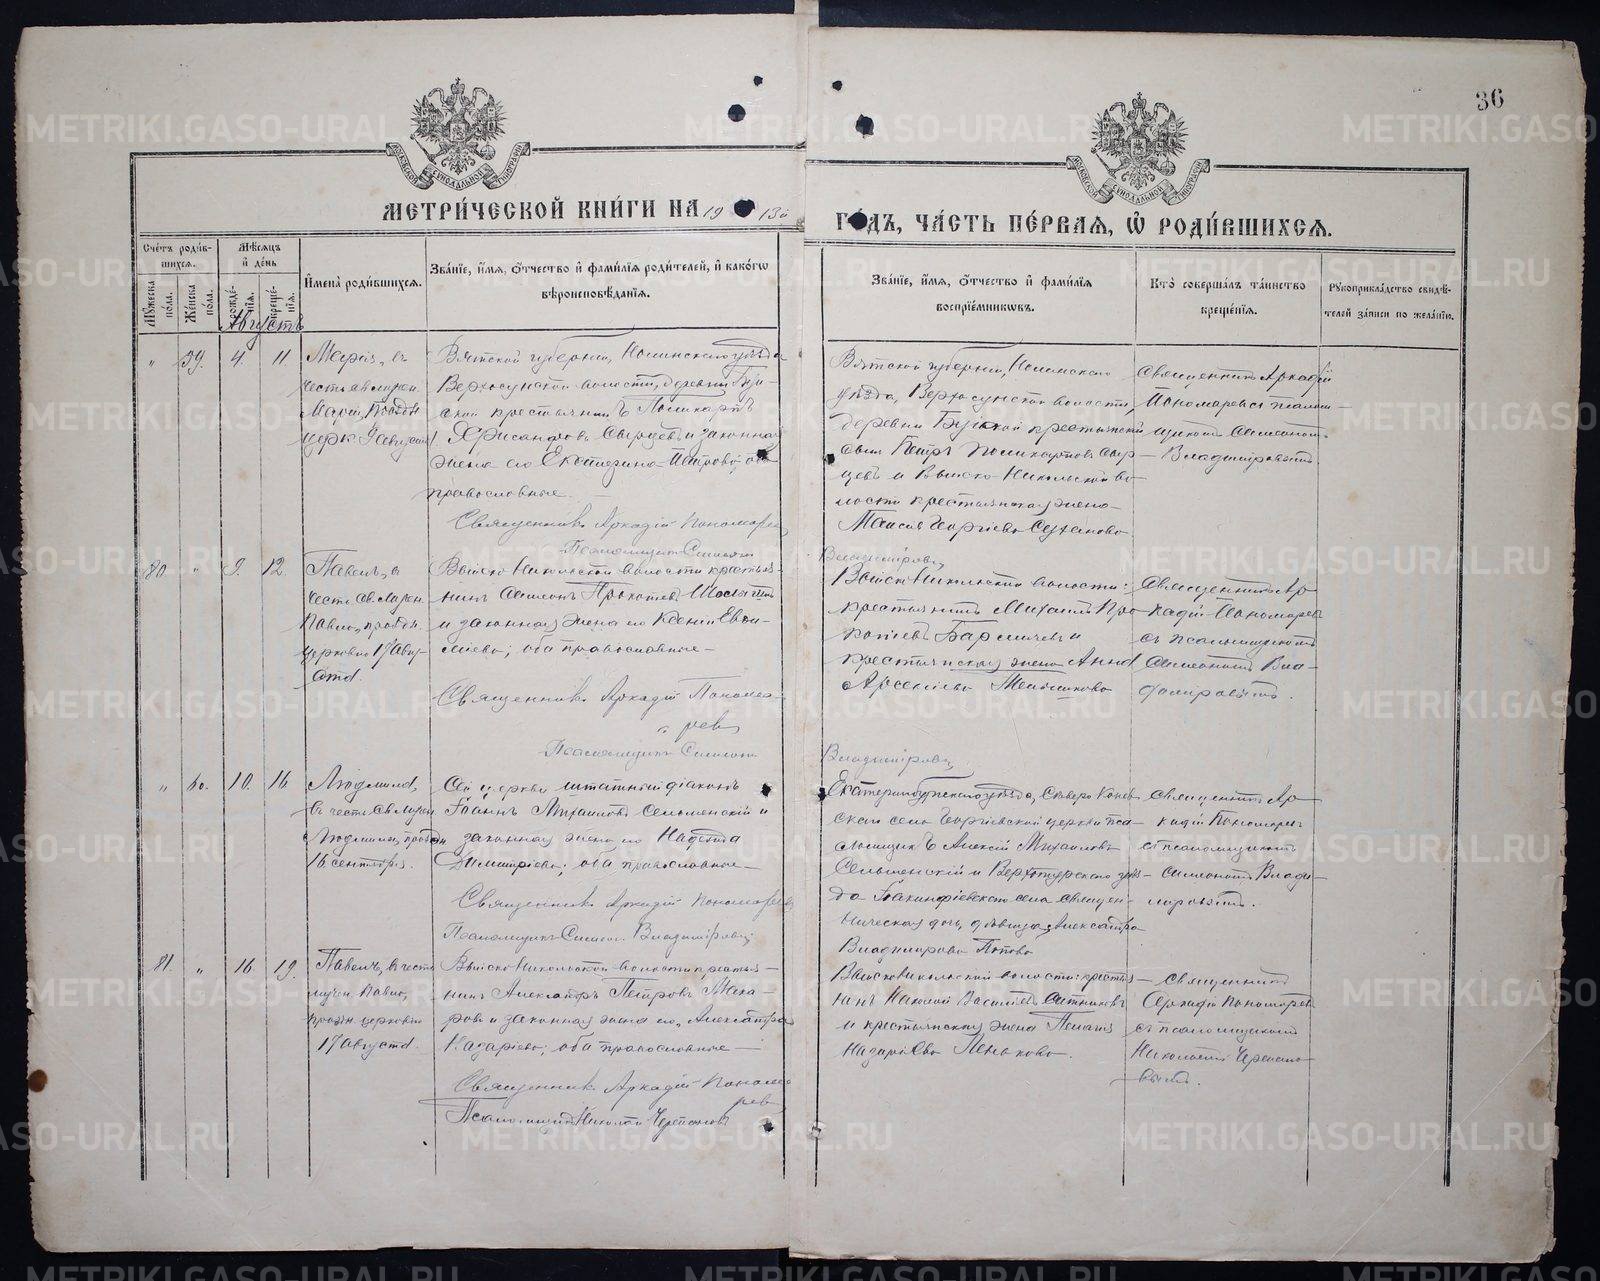 36
МОСКОВСКОЙ СѴНОДАЛЬНОЙ ТИПОГРАФІИ
МОСКОВСКОЙ СѴНОДАЛЬНОЙ ТИПОГРАФІИ
МЕТРИ́ЧЕСКОЙ КНИ́ГИ НА 1913й
ГО́ДЪ, ЧА́СТЬ ПЕ́РВАЯ, Ѡ҆ РОДИ́ВШИХСЯ.
Сче́тъ роди́вшихся.
Мѣ́сяцъ и҆ де́нь
Му́жеска по́ла.
Же́нска по́ла.
рожде́нїѧ.
креще́нїѧ.
И҆мена̀ роди́вшихсѧ.
Зва́нїе, и҆́мѧ, ѻ҆́тчество и҆ фами́лїѧ роди́телей, и҆ како́гѡ
вѣроисповѣ́данїѧ.
Зва́нїе, и҆́мѧ, ѻ҆́тчество и҆ фами́лїѧ
воспрїе́мникѡвъ.
Кто̀ соверша́лъ та́инство
креще́нїѧ.
Рукоприкла́дство свидѣ́-
телей за́писи по жела́нїю.
Августъ
" 59. 4. 11.
Марія, въ
честь св. мучен.
Маріи, празд.
церк. 9 февраля
Вятской губерніи, Нолинскаго уѣзда
Верхосунской волости, деревни
крестьянинъ Поликарпъ
Хрисанфовъ Сырцевъ и законная
жена его Екатерина Петрова, оба
православные.
Священникъ Аркадій Пономарев
Псаломщикъ Симеонъ
Вятской губерніи, Нолинскаго
уѣзда, Верхосунской волости,
деревни крестьянскій
сынъ Петръ Поликарповъ Сыр-
цевъ и Выйско-Никольской во-
лости крестьянская жена
Таисія Георгіева
Владиміровъ
Священникъ Аркадій
Пономаревъ съ псалом-
щикомъ Симеономъ
Владиміровымъ.
80. " 9. 12.
Павелъ, въ
честь св. мучен.
Павла, празд.
церковію 17 авгу-
ста.
Выйско-Никольской волости крестья-
нинъ Симеонъ Прокопіевъ
и законная жена его Ксенія Евфи-
міева; оба православные
Священникъ Аркадій Понома-
рев
Псаломщикъ Симеонъ
Выйско-Никольской волости:
крестьянинъ Михаилъ Про-
копіевъ и
крестьянская жена Анна
Арсеніева Меньшикова
Владиміровъ
Священникъ Ар-
кадій Пономаревъ
съ псаломщикомъ
Симеономъ Вла-
диміровымъ.
" 60. 10. 16.
Людмила,
въ честь св. мучен.
Людмилы, празд.
16 сентября.
Сей церкви штатный діаконъ
Іоаннъ Михаиловъ Сельменскій и
законная жена его Надежда
Димитріева; оба православные
Священникъ Аркадій Пономарев
Псаломщикъ Симеонъ Владиміровъ
Екатеринбургскаго уѣзда, Сѣверо-Конев-
скаго села Георгіевской церкви пса-
ломщикъ Алексій Михаиловъ
Сельменскій и Верхотурскаго уѣз-
да Іоакинфіевскаго села священ-
ническая дочь, дѣвица Александра
Владимірова Попова
Священникъ Ар-
кадій Пономаревъ
съ псаломщикомъ
Симеономъ Влади-
міровымъ.
81. " 16. 19.
Павелъ, въ честь
мучен. Павла,
празд. церковію
17 августа.
Выйско-Никольской волости крестья-
нинъ Александръ Петровъ Мака-
ровъ и законная жена его, Александра
Назаріева; оба православные
Священникъ Аркадій Понома-
рев
Псаломщикъ Николай Черепановъ
Выйско-Никольской волости: крестья-
нинъ Николай Василіевъ Ситниковъ
и крестьянская жена Пелагія
Назаріева Пенькова.
Священникъ
Аркадій Пономарев
съ псаломщикомъ
Николаемъ Черепано-
вымъ.
METRIKI.GASO-URAL.RU